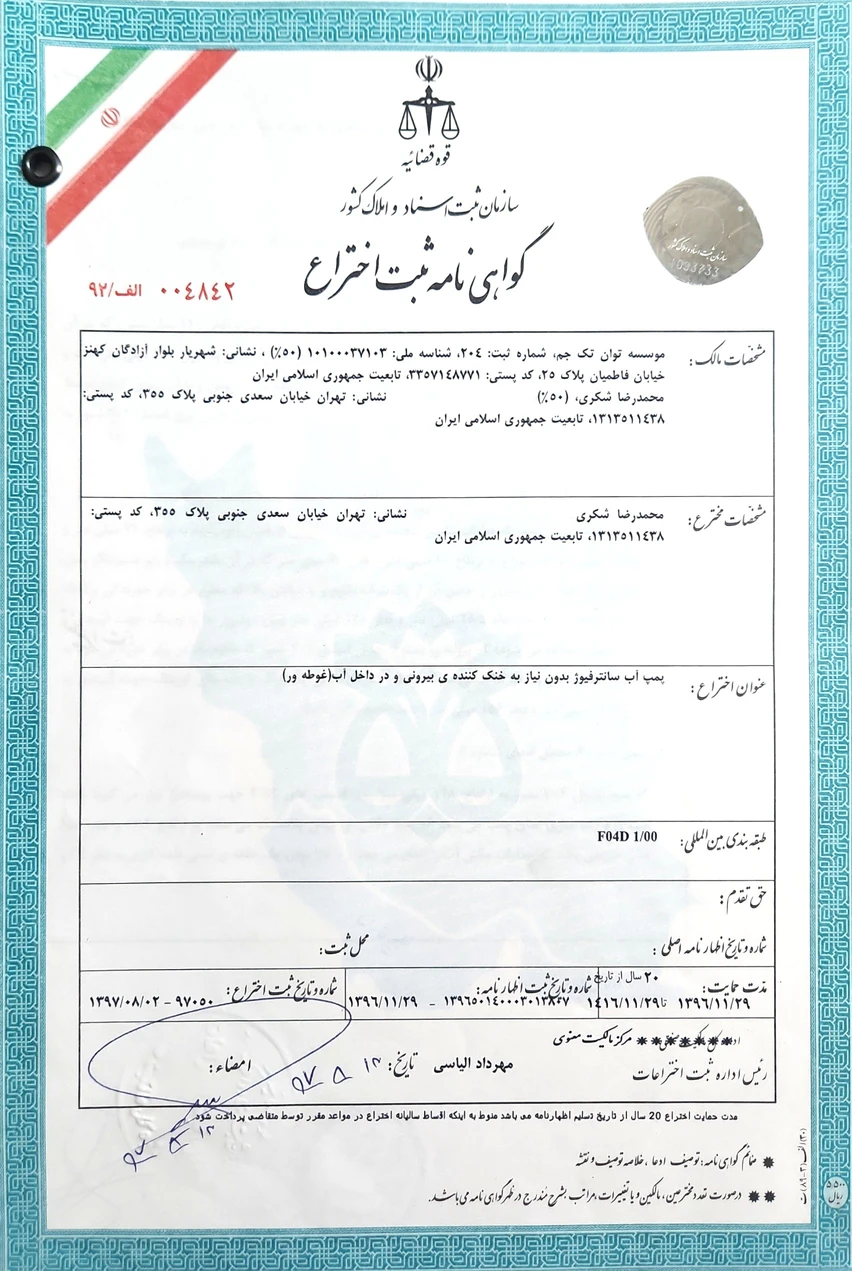 قوه قضائیه
سازمان ثبت اسناد و املاک کشور
گواهی نامه ثبت اختراع
۰۰٤٨٤٢ الف/٩٢
سازمان ثبت اسناد و املاک کشور
مشخصات مالک: موسسه توان تک جم، شماره ثبت: ٢٠٤، شناسه ملی: ١٠١٠٠٠٣٧١٠٣ (٥٠٪) ، نشانی: شهریار بلوار آزادگان کهنز
خیابان فاطمیان پلاک ٢٥، کد پستی: ٣٣٥٧١٤٨٧٧١، تابعیت جمهوری اسلامی ایران
محمدرضا شکری، (٥٠٪) نشانی: تهران خیابان سعدی جنوبی پلاک ٣٥٥، کد پستی:
١٣١٣٥١١٤٣٨، تابعیت جمهوری اسلامی ایران
مشخصات مخترع: محمدرضا شکری نشانی: تهران خیابان سعدی جنوبی پلاک ٣٥٥، کد پستی:
١٣١٣٥١١٤٣٨، تابعیت جمهوری اسلامی ایران
عنوان اختراع: پمپ آب سانترفیوژ بدون نیاز به خنک کننده ی بیرونی و در داخل آب(غوطه ور)
طبقه بندی بین المللی: F04D 1/00
حق تقدم:
شماره و تاریخ اظهار نامه اصلی : محل ثبت:
مدت حمایت: ٢٠ سال از تاریخ شماره و تاریخ ثبت اظهارنامه: شماره و تاریخ ثبت اختراع:
١٣٩٦/١١/٢٩ تا ١٤١٦/١١/٢٩ ١٣٩٦٥٠١٤٠٠٠٣٠١٣٨٢٧ - ١٣٩٦/١١/٢٩ ٩٧٠٥٠ - ١٣٩٧/٠٨/٠٢
مرکز مالکیت معنوی
رئیس اداره ثبت اختراعات مهرداد الیاسی تاریخ: امضاء:
مدت حمایت اختراع 20 سال از تاریخ تسلیم اظهارنامه می باشد منوط به اینکه اقساط سالیانه اختراع در مواعد مقرر توسط متقاضی پرداخت شود
✸ ضمائم گواهی نامه: توصیف ادعا ، خلاصه توصیف و نقشه
✸ ✸ درصورت تعدد مخترعین، مالکین و یا تغییرات، مراتب بشرح مندرج در ظهر گواهی نامه می باشد.
٥٥٠٠ ریال